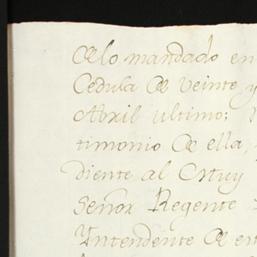 de lo mandado en
Cedula de veinte y
Abril ultimo;
timonio de ella,
diente al
Señor Regente
Yntendente de